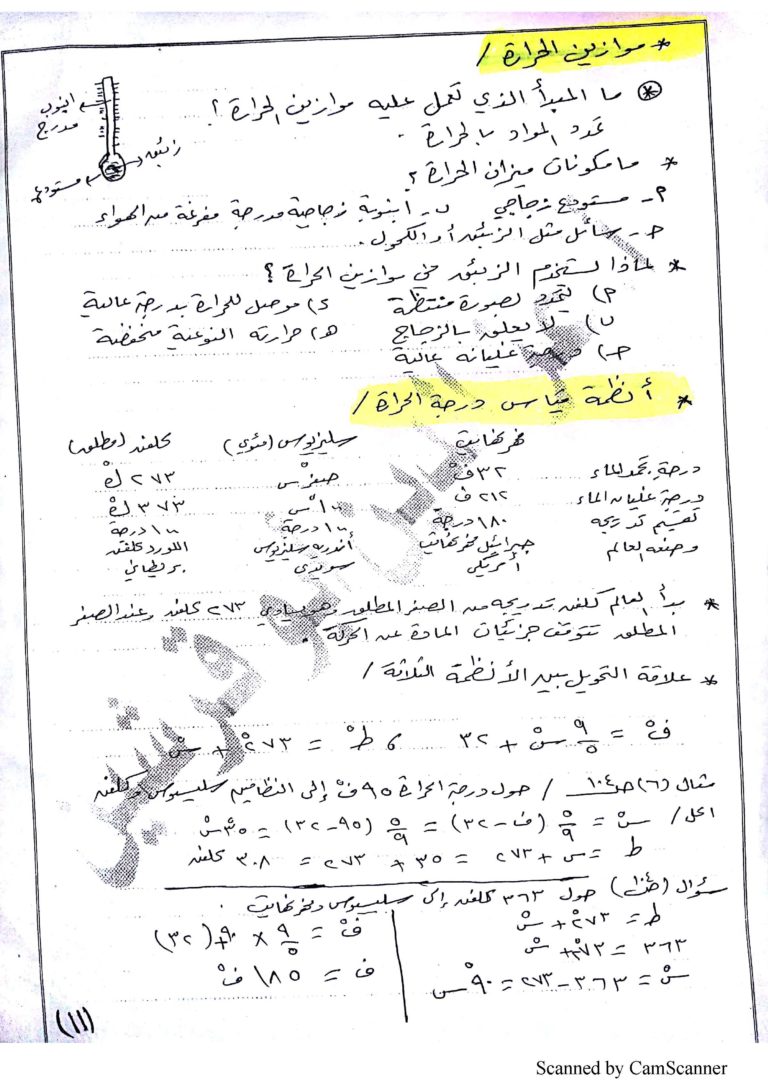 * موازين الحرارة /
* ما المبدأ الذي تعمل عليه موازين الحرارة ؟
تمدد المواد بالحرارة .
انبوب مدرج
زئبق
مستودع
* ما مكونات ميزان الحرارة ؟
م- مستودع زجاجي ب- أنبوبة زجاجية مدرجة مفرغة من الهواء
حـ- سائل مثل الزئبق أو الكحول .
* لماذا يستخدم الزئبق في موازين الحرارة ؟
م) يتمدد بصورة منتظمة د) موصل للحرارة بدرجة عالية
ب) لا يعلق بالزجاج هـ) حرارته النوعية منخفضة
حـ) درجة غليانه عالية
* أنظمة قياس درجة الحرارة /
فهرنهايت سليزيوس (مئوي) كلفن (مطلق)
درجة تجمد الماء ٣٢ ف° صفر°س ٢٧٣ ك°
درجة غليان الماء ٢١٢ ف ١٠٠°س ٣٧٣ ك°
تقسيم تدريجه ١٨٠ درجة ١٠٠ درجة ١٠٠ درجة
وضعه العالم جبرائيل فهرنهايت أندريه سليزيوس اللورد كلفن
أمريكي سويدي بريطاني
* بدأ العالم كلفن تدريجه من الصفر المطلق وهو يساوي ٢٧٣ كلفن وعند الصفر
المطلق تتوقف جزيئات المادة عن الحركة .
* علاقة التحويل بين الأنظمة الثلاثة /
ف° = ٩/٥ س° + ٣٢ ، ط° = ٢٧٣ + س°
مثال (٦) صـ١٠٤ / حول درجة الحرارة ٩٥ ف° إلى النظامين سليسيوس وكلفن
الحل / س° = ٥/٩ (ف - ٣٢) = ٥/٩ (٩٥ - ٣٢) = ٣٥°س
ط = س + ٢٧٣ = ٣٥ + ٢٧٣ = ٣٠٨ كلفن
سؤال (صـ١٠٤) حول ٣٦٣ كلفن إلى سليسيوس وفهرنهايت .
ط = ٢٧٣ + س°
٣٦٣ = ٢٧٣ + س°
س° = ٣٦٣ - ٢٧٣ = ٩٠°س
ف° = ٩/٥ × ٩٠ + (٣٢)
ف = ١٨٥ ف°
(١١)
Scanned by CamScanner